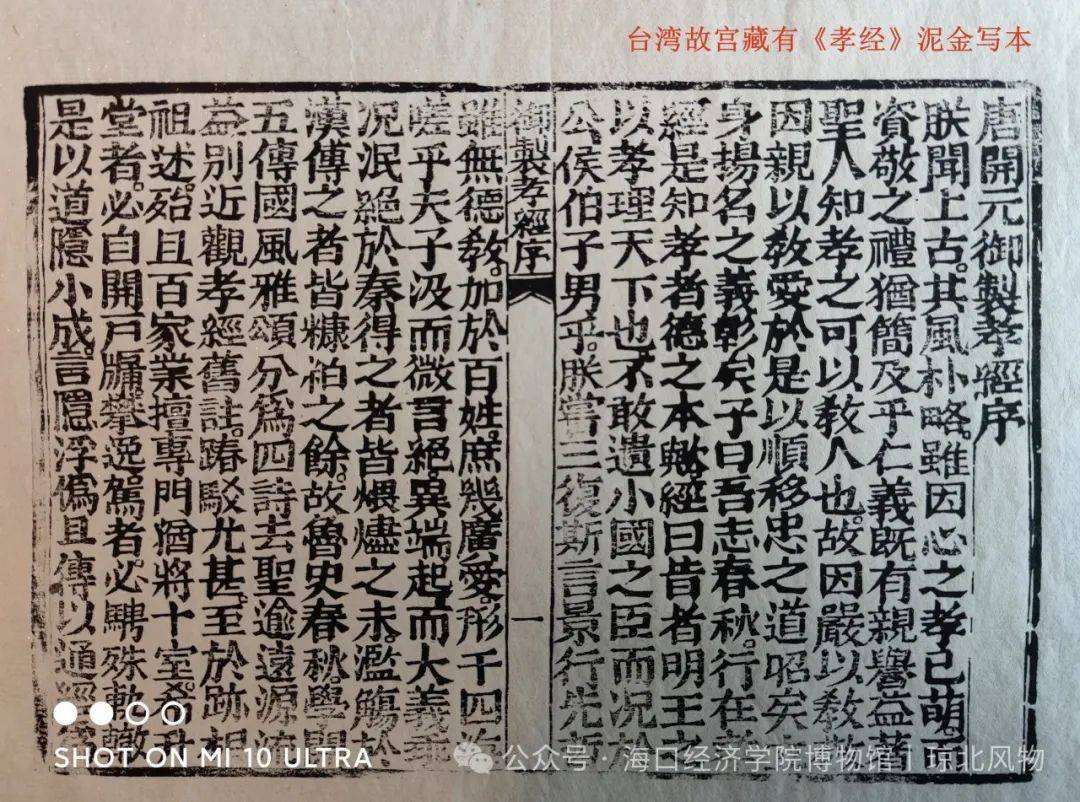 台湾故宫藏有《孝经》泥金写本
唐開元御製孝經序
朕聞上古。其風朴略。雖因心之孝已萌。
資敬之禮猶簡及乎仁義既有親譽益著
聖人知孝之可以教人也。故因嚴以教敬
因親以教愛於是以順移忠之道昭矣
身揚名之義彰矣子曰吾志春秋。行在
經是知孝者德之本歟經曰昔者明王之
以孝理天下也不敢遺小國之臣而況於
公侯伯子男乎。朕嘗三復斯言景行先
御製孝經序
一
雖無德教。加於百姓。庶幾廣愛。形千四海
嗟乎天子沒而微言絕異端起而大義
況泯絕於秦得之者皆煨燼之末。濫觴於
漢傳之者皆糠粕之餘。故魯史春秋。學開
五傳國風雅頌分為四詩去聖逾遠源流
益別近觀孝經舊註。踳駁尤甚。至於跡相
祖述。殆且百家業擅專門猶將十室。希升
堂者。必自開戶牖。攀逸駕者。必騁殊軌轍
是以道隱小成。言隱浮偽且傳以通經
SHOT ON MI 10 ULTRA
公众号·海口经济学院博物馆|琼北风物